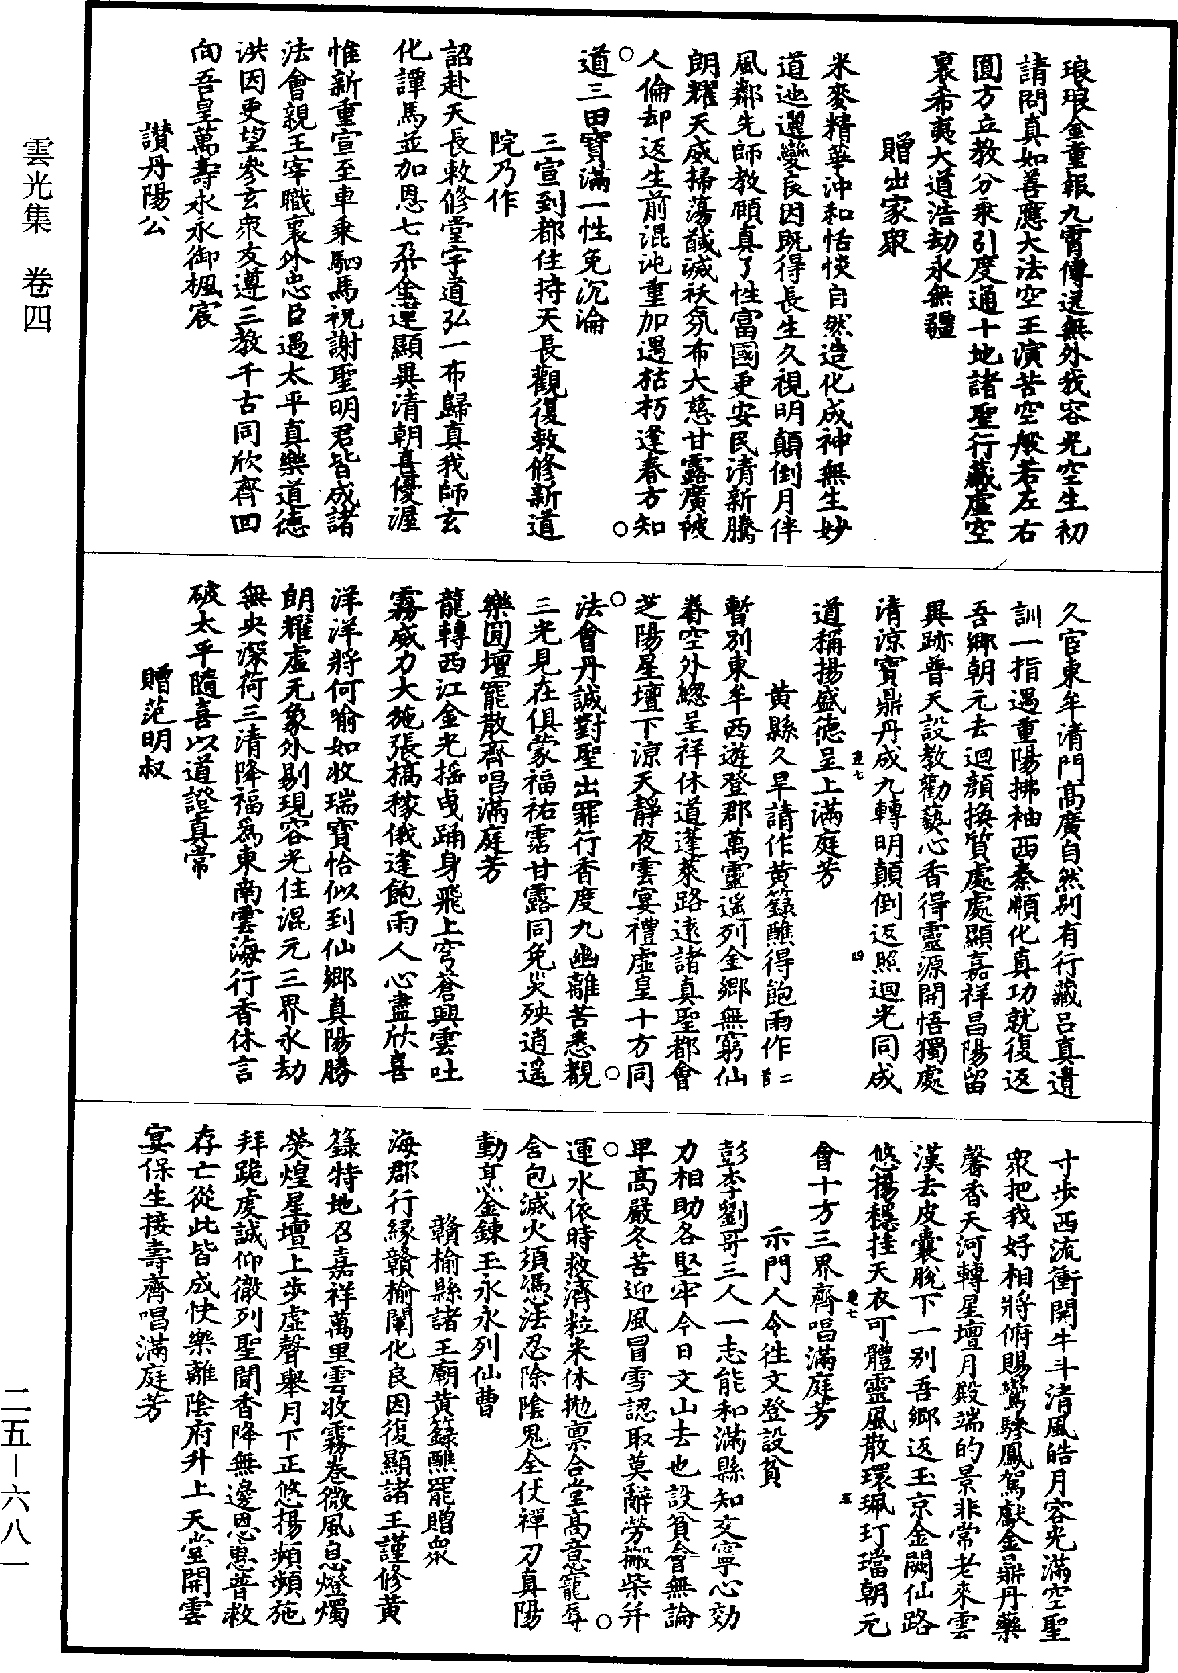 雲光集 卷四
琅琅金童報九霄傳送無外我容光空生初
請問真如善應大法空王演苦空般若左右
圓方立教分乘引度通十地諸聖行藏虛空
裏希夷大道浩劫永無疆
贈出家眾
米麥精華沖和恬惔自然造化成神無生妙
道迆邐變良因既得長生久視明顛倒月伴
風鄰先師教願真了性富國更安民清新騰
朗耀天威掃蕩馘滅祅氛布大慈甘露廣被
人倫却返生前混沌重加遇枯朽逢春方知
道三田寶滿一性免沉淪
三宣到都住持天長觀復敕修新道
院乃作
詔赴天長敕修堂宇道弘一布歸真我師玄
化譚馬並加恩七朵金蓮顯異清朝喜優渥
惟新重宣至車乘駟馬祝謝聖明君皆成諸
法會親王宰職裏外忠臣遇太平真樂道德
洪因更望參玄眾友遵三教千古同欣齊回
向吾皇萬壽永永御楓宸
讚丹陽公
久官東牟清門高廣自然別有行藏呂真遺
訓一指遇重陽拂袖西秦順化真功就復返
吾鄉朝元去迴顏換質處處顯嘉祥昌陽留
異跡普天設教勸爇心香得靈源開悟獨處
清涼寶鼎丹成九轉明顛倒返照迴光同成
道稱揚盛德呈上滿庭芳
黄縣久旱請作黄籙醮得飽雨作二首
暫別東牟西遊登郡萬靈遥列金鄉無窮仙
眷空外總呈祥休道蓬萊路遠諸真聖都會
芝陽星壇下涼天靜夜雲宴禮虛皇十方同
法會丹誠對聖出罪行香度九幽離苦悉觀
三光見在俱蒙福祐霑甘露同免災殃逍遥
樂圓壇寵散齊唱滿庭芳
龍轉西江金光搖曳踊身飛上穹蒼興雲吐
霧威力大施張槁稼俄逢飽雨人心盡欣喜
洋洋將何喻如收瑞寶恰似到仙鄉真陽勝
朗耀虛无象外剔現容光住混元三界永劫
無央深荷三清降福為東南雲海行香休言
破太平隨喜以道證真常
贈范明叔
寸步西流衝開牛斗清風皓月容光滿空聖
眾把我好相將俯賜鸞驂鳳駕獻金鼎丹藥
馨香天河轉星壇月殿端的景非常老來雲
漢去皮囊脫下一別吾鄉返玉京金闕仙路
悠揚穩挂天衣可體靈風散環珮玎璫朝元
會十方三界齊唱滿庭芳
示門人令往文登設貧
彭李劉哥三人一志能和滿縣知交寧心効
力相助各堅牢今日文山去也設貧會無論
卑高嚴冬苦迎風冒雪認取莫辭勞搬柴并
運水依時救濟粒米休拋禀合堂高意寵辱
含包滅火須憑法忍除陰鬼全仗禪刀真陽
動烹金鍊玉永永列仙曹
贛榆縣諸王廟黄籙醮罷贈眾
海郡行緣贛榆闡化良因復顯諸王謹修黄
籙特地召嘉祥萬里雲收霧卷微風息燈燭
熒煌星壇上步虛聲舉月下正悠揚頻頻施
拜跪虔誠仰徹列聖聞香降無邊恩惠普救
存亡從此皆成快樂離陰府升上天堂開雲
宴保生接壽齊唱滿庭芳
二五－六八一